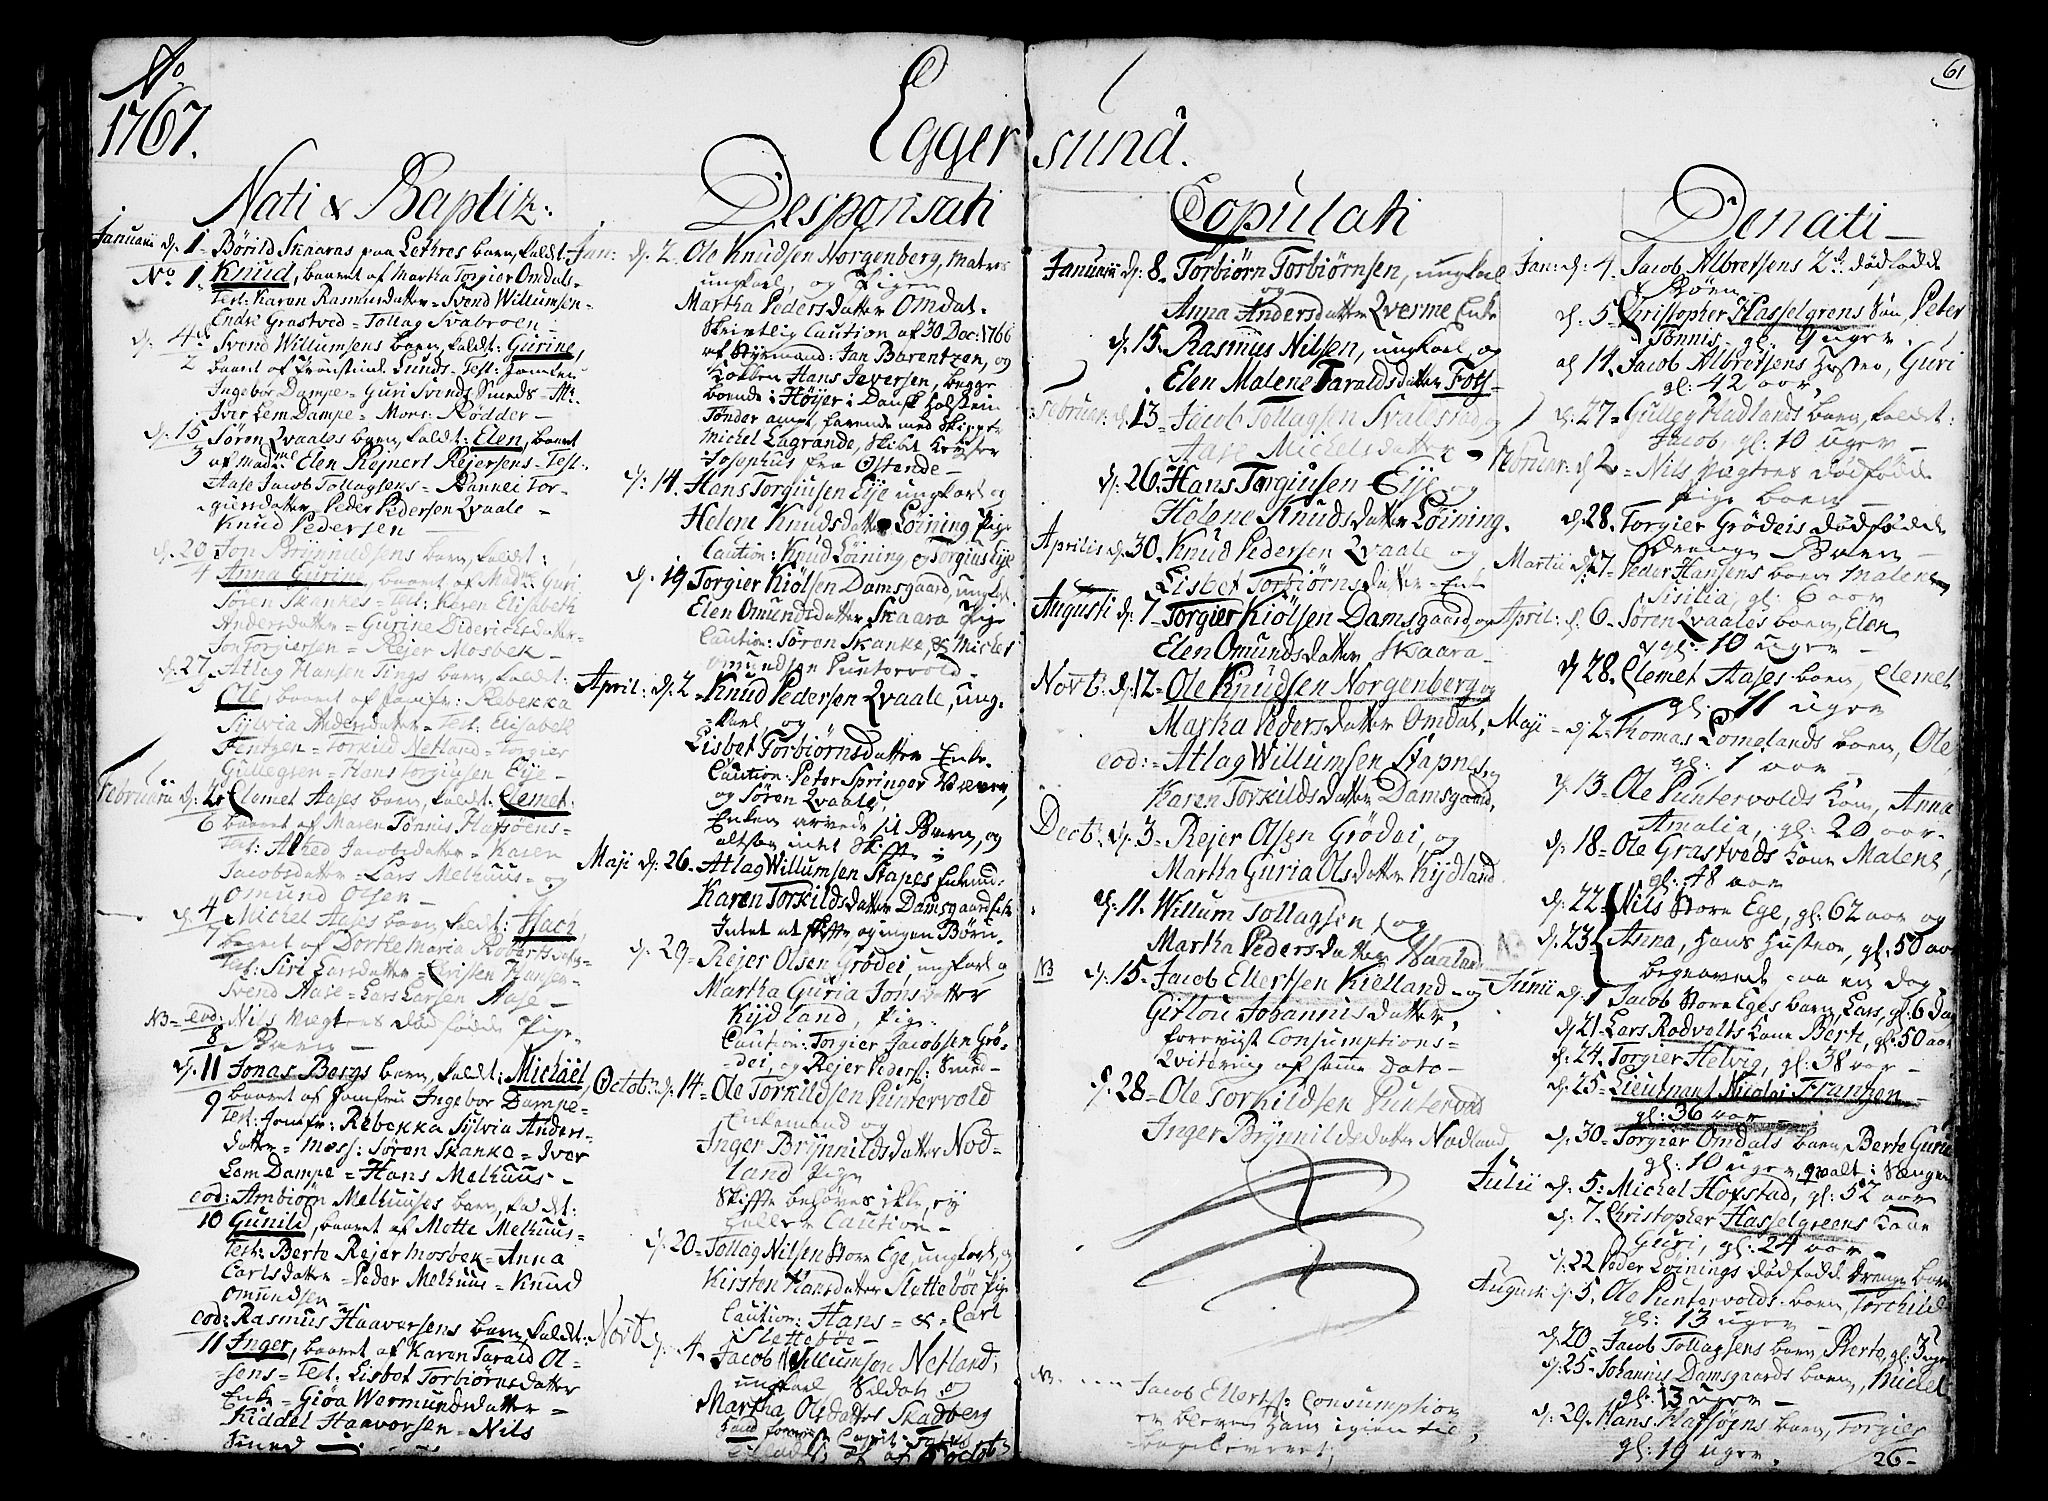 61
Ao
1767.
Eggersund.
Nati & Baptiz:
Januarii d. 1- Börild Skaaras paa Lethres barn, kaldt:
No 1. Knud, baaret af Martha Torgier Omdals-
Test: Karen Rasmusdatter- Svend Willumsen-
Endre Grastved- Tollag Svabroen-
d. 4. Svend Willumsens barn, kaldt: Gurine,
2 baaret af Lunds- Test:
Ingebor Dampe- Guri Svends Smeds-
Iver Lem Dampe- Mons: Rödder-
d. 15 Sören Qvaales barn, kaldt: Elen, baaret
3 af Madme Elen Rejnert Rejersens- Test:
Aase Jacob Tollagsens- Rannei Tor-
giersdatter- Peder Pedersen Qvaale-
Knud Pedersen
d. 20 Jon Brynnildsens barn, kaldt:
4 Anna Gurine, baaret af Madme Guri
Sören Skankes- Test: Karen Elisabeth
Andersdatter- Gurine Diderichsdatter-
Jon Torgiersen- Rejer Mosbek-
d. 27 Atlag Hansen Tings barn, kaldt:
5 Ole, baaret af Jomfr: Rebekka
Sylvia Andersdatter- Test: Elisabeth
Fentzen- Torkild Netland- Torgier
Gullegsen- Hans Torgiusen Eije-
Februarii d. 2. Clemet Aases barn, kaldt: Clemet.
6 baaret af Maren Tönnis Hafsöens-
Test: Jacobsdatter- Karen
Jacobsdatter- Lars Melhuus- og
Omund Olsen-
d. 4 Michel Aases barn, kaldt: Isach,
7 baaret af Dorthe Maria
Test: Siri Larsdatter- Christen Hansen-
Svend Aase- Lars Larsen Aase-
NB- eod: Nils Mægters dödfödde Pige-
8 Barn-
d. 11 Jonas Bergs barn, kaldt: Michäel,
9 baaret af Jomfru Ingebor Dampe-
Test: Jomfr: Rebekka Sylvia Anders-
datter- Mess: Sören Skanke- Iver
Lem Dampe- Hans Melhuus-
eod: Ambiörn Melhuuses barn, kaldt:
10 Gunild, baaret af Mette Melhuus-
Test: Berte Rejer Mosbek- Anna
Carlsdatter- Peder Melhuus- Knud
Omundsen-
eod: Rasmus Haaversens barn, kaldt:
11 Inger, baaret af Karen Tarald Ol-
sens- Test: Lisbet Torbiörnsdatter
Enke- Giöa Wermundsdatter-
Kiddel Haavorsen- Nils
Smed
Desponsati
Jan: d. 2. Ole Knudsen Norgenberg, Matros
ungkarl, og Pigen
Martha Pedersdatter Omdal.
Skrivtlig Caution af 30 Dec: 1766
af Styrmand: Jan Barentzen, og
Kokken Hans Jeversen, begge
boende i Höijer i Dansk Holstein
Tönder ampt, farende med Skipper
Michel Lagrande, Skibet Keyser
Josephus fra Ostende-
d. 14. Hans Torgiusen Eije ungkarl og
Helene Knudsdatter Löining Pige
Caution: Knud Löining, og Torgius Eije
d. 19 Torgier Kiölsen Damsgaard, ungkarl
Elen Omundsdatter Skaara Pige
Caution: Sören Skanke, & Michel
Omundsen Puntervold-
April: d. 2- Knud Pedersen Qvaale, ung-
karl og
Lisbet Torbiörnsdatter Enke.
Caution: Peter Springer Væver,
og Sören Qvaale.
Enken arvede sit Barn, og
altsaa intet Skifte i
Maji d. 26. Atlag Willumsen Stapes Enkmd:
Karen Torkildsdatter Damsgaard
Intet at skifte, og ingen Börn.
d. 29- Rejer Olsen Grödei, ungkarl og
Martha Guria Jonsdatter
Kydland, Pige.
Caution: Torgier Jacobsen Grö-
dei, og Rejer Peders: Smed-
Octobr: d. 14- Ole Torkildsen Puntervold
Enkemand og
Inger Brynnildsdatter Nod-
land Pige
Skifte behöves ikke, ej
heller Caution-
d. 20- Tollag Nilsen Store Ege, ungkarl, og
Kirsten Hansdatter Sletteböe Pige
Caution: Hans- & Carl
Sletteböe-
Novbr: d. 4. Jacob Willumsen Netland,
ungkarl Soldat og
Martha Olsdatter Skadberg
Copulati
Januarii d. 8. Torbiörn Torbiörnsen, ungkarl
og
Anna Andersdatter Qverme Enke
d. 15. Rasmus Nilsen, ungkarl, og
Elen Malene Taraldsdatter Fots-
Februar: d. 13- Jacob Tollagsen Svalestad, og
Aase Michelsdatter-
d. 26. Hans Torgiusen Eije og
Helene Knudsdatter Löining.
Aprilis d. 30. Knud Pedersen Qvaale og
Lisbet Torbiörnsdatter- Enke
Augusti d. 7- Torgier Kiölsen Damsgaard, og
Elen Omundsdatter Skaara-
Novbr: d. 12- Ole Knudsen Norgenberg og
Martha Pedersdatter Omdal,
eod:- Atlag Willumsen Stapnes, og
Karen Torkildsdatter Damsgaard,
Decbr: d. 3- Rejer Olsen Grödei, og
Martha Guria Olsdatter Kydland.
d. 11. Willum Tollagsen, og
Martha Pedersdatter Vaaland
NB d. 15- Jacob Ellertsen Kielland- og
Gitlou Johannisdatter,
foreviist Consumptions-
Qvitering af samme dato-
d. 28- Ole Torkildsen Puntervold
Inger Brynnildsdatter Nodland
NB- Jacob Ellerts: Consumption
er bleven ham igien til-
bageleveret,
Denati-
Jan: d. 4. Jacob Albretsens 2de dödfödde
Börn-
d. 5- Christopher Hasselgrens Sön, Peter
Tönnis- gl: 9 uger.
d. 14. Jacob Albretsens Hustro, Guri
gl: 42 aar.
d. 27- Gulleg Hadlands barn, kaldt:
Jacob, gl: 10 uger-
Februar: d. 2- Nils Mægters dödfödde
Pige barn-
d. 28. Torgier Grödeis dödfödde
drenge Barn-
Martii d. 27- Peder Hansens barn Malene
Sisilia, gl: 6 aar
April: d. 6- Sören Qvaales barn, Elen
gl: 10 uger-
d. 28. Clemet Aases barn, Clemet
gl: 11 uger
Maji- d. 2- Thomas Lomelands barn, Ole,
gl: 1 aar
d. 13- Ole Puntervolds Kone, Anna
Amalia, gl: 20 aar-
d. 18- Ole Grastveds Kone Malene,
gl: 48 aar
d. 22- Nils Store Ege, gl: 62 aar og
d. 23- Anna, hans Hustroe, gl: 50 aar
begravede paa en dag
NB
Junii d. 1 Jacob Store Eges barn, Lars, gl: 6 Dag
d. 21- Lars Rodvelts Kone Berte, gl: 50 aar
d. 24. Torgier Helvig, gl: 38 aar-
d. 25- Lieutnant Nicolai Frantzen-
gl: 36 aar-
d. 30- Torgier Omdals barn, Berte Guria
gl: 10 uger, qvalt i Sengen
Julii d. 5: Michel Hovstad, gl: 52 aar
d. 7. Christopher Hasselgreens Kone
Guri, gl: 24 aar-
d. 22 Peder Löinings dödfödde drenge barn
Augusti d. 5. Ole Puntervolds barn, Torchild
gl: 13 uger-
d. 20- Jacob Tollagsens barn, Berta, gl: 3 uger
d. 25- Johannis Damsgaards barn, Michel
gl: 13 uger-
d. 29. Hans Hafsöens barn, Torgier
gl: 19 uger.
26-